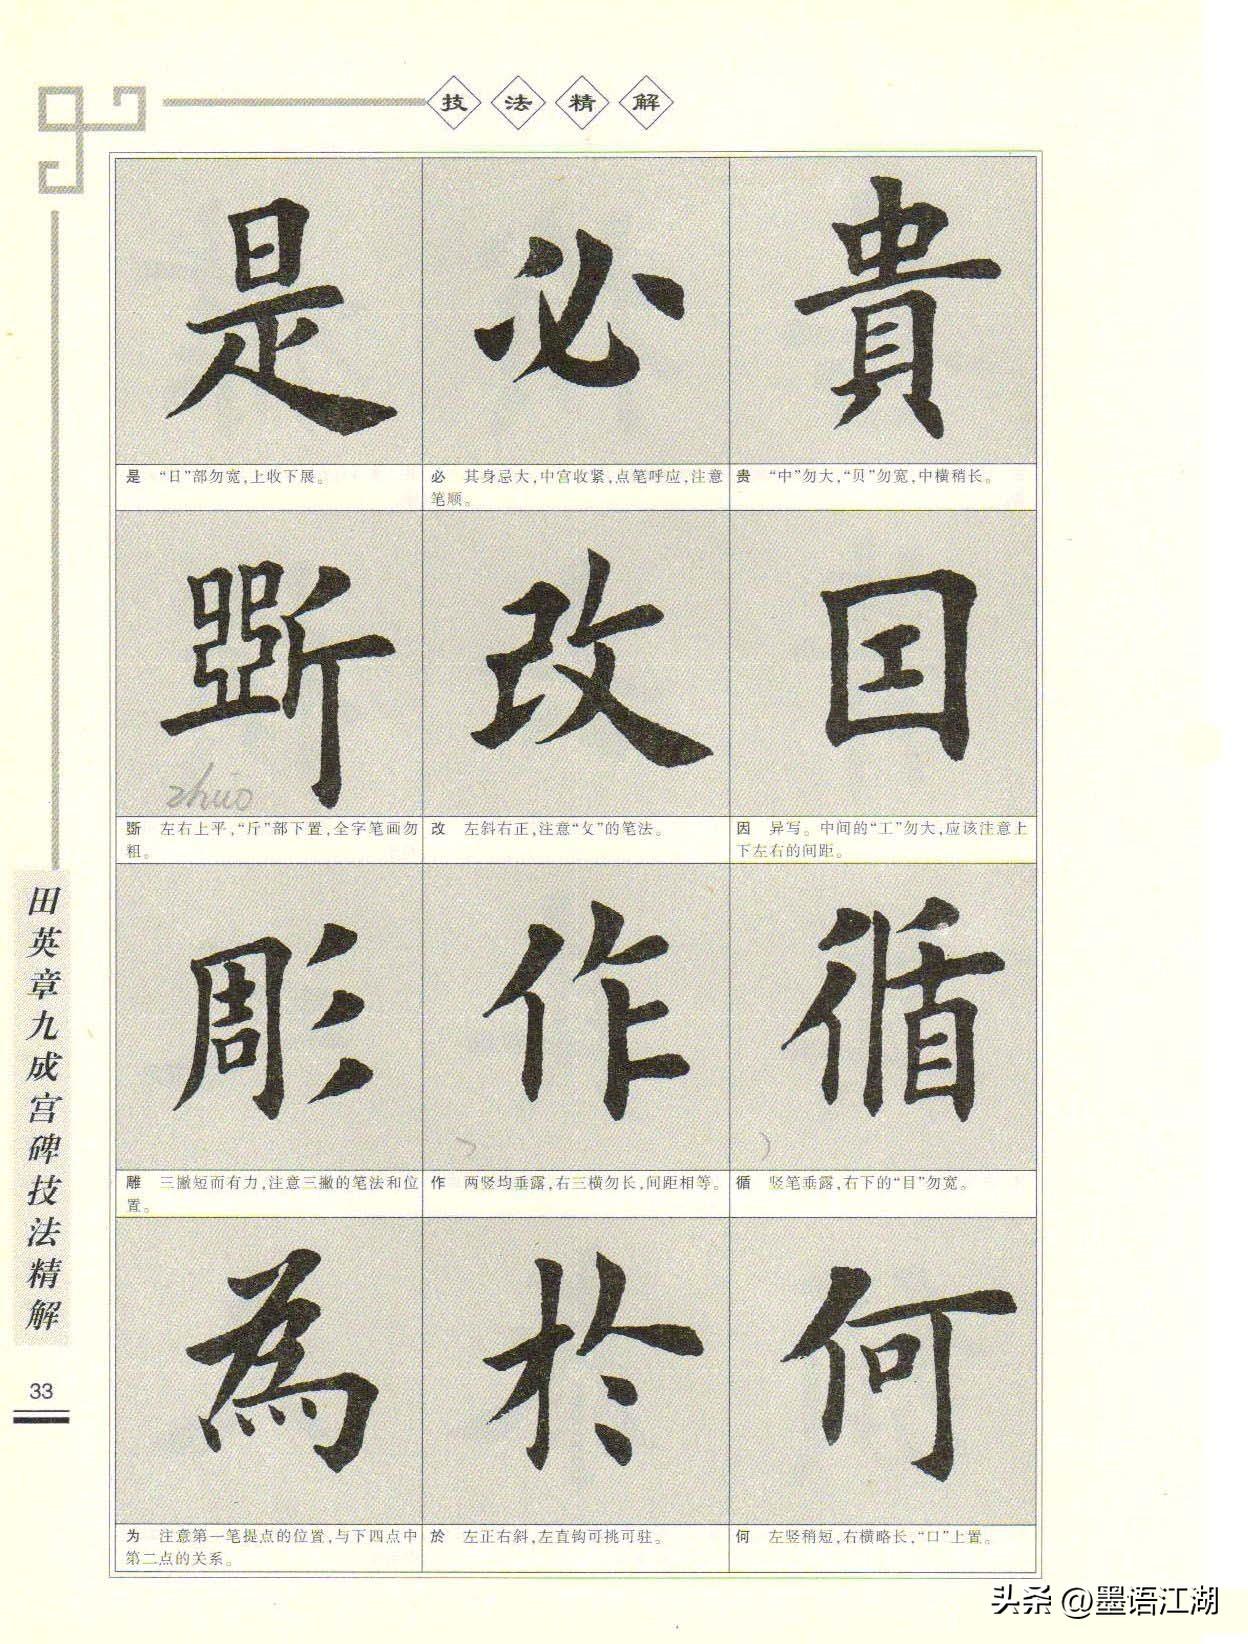 技法精解
是 必 貴
是 “日”部勿宽,上收下展。
必 其身忌大,中宫收紧,点笔呼应,注意
笔顺。
贵 “中”勿大,“贝”勿宽,中横稍长。
斲 改 囙
zhuó
斲 左右上平,“斤”部下置,全字笔画勿
粗。
改 左斜右正,注意“攵”的笔法。
因 异写。中间的“工”勿大,应该注意上
下左右的间距。
彫 作 循
雕 三撇短而有力,注意三撇的笔法和位
置。
作 两竖均垂露,右三横勿长,间距相等。
循 竖笔垂露,右下的“目”勿宽。
為 於 何
为 注意第一笔提点的位置,与下四点中
第二点的关系。
於 左正右斜,左直钩可挑可驻。
何 左竖稍短,右横略长,“口”上置。
田英章九成宫碑技法精解
33
头条 @墨语江湖